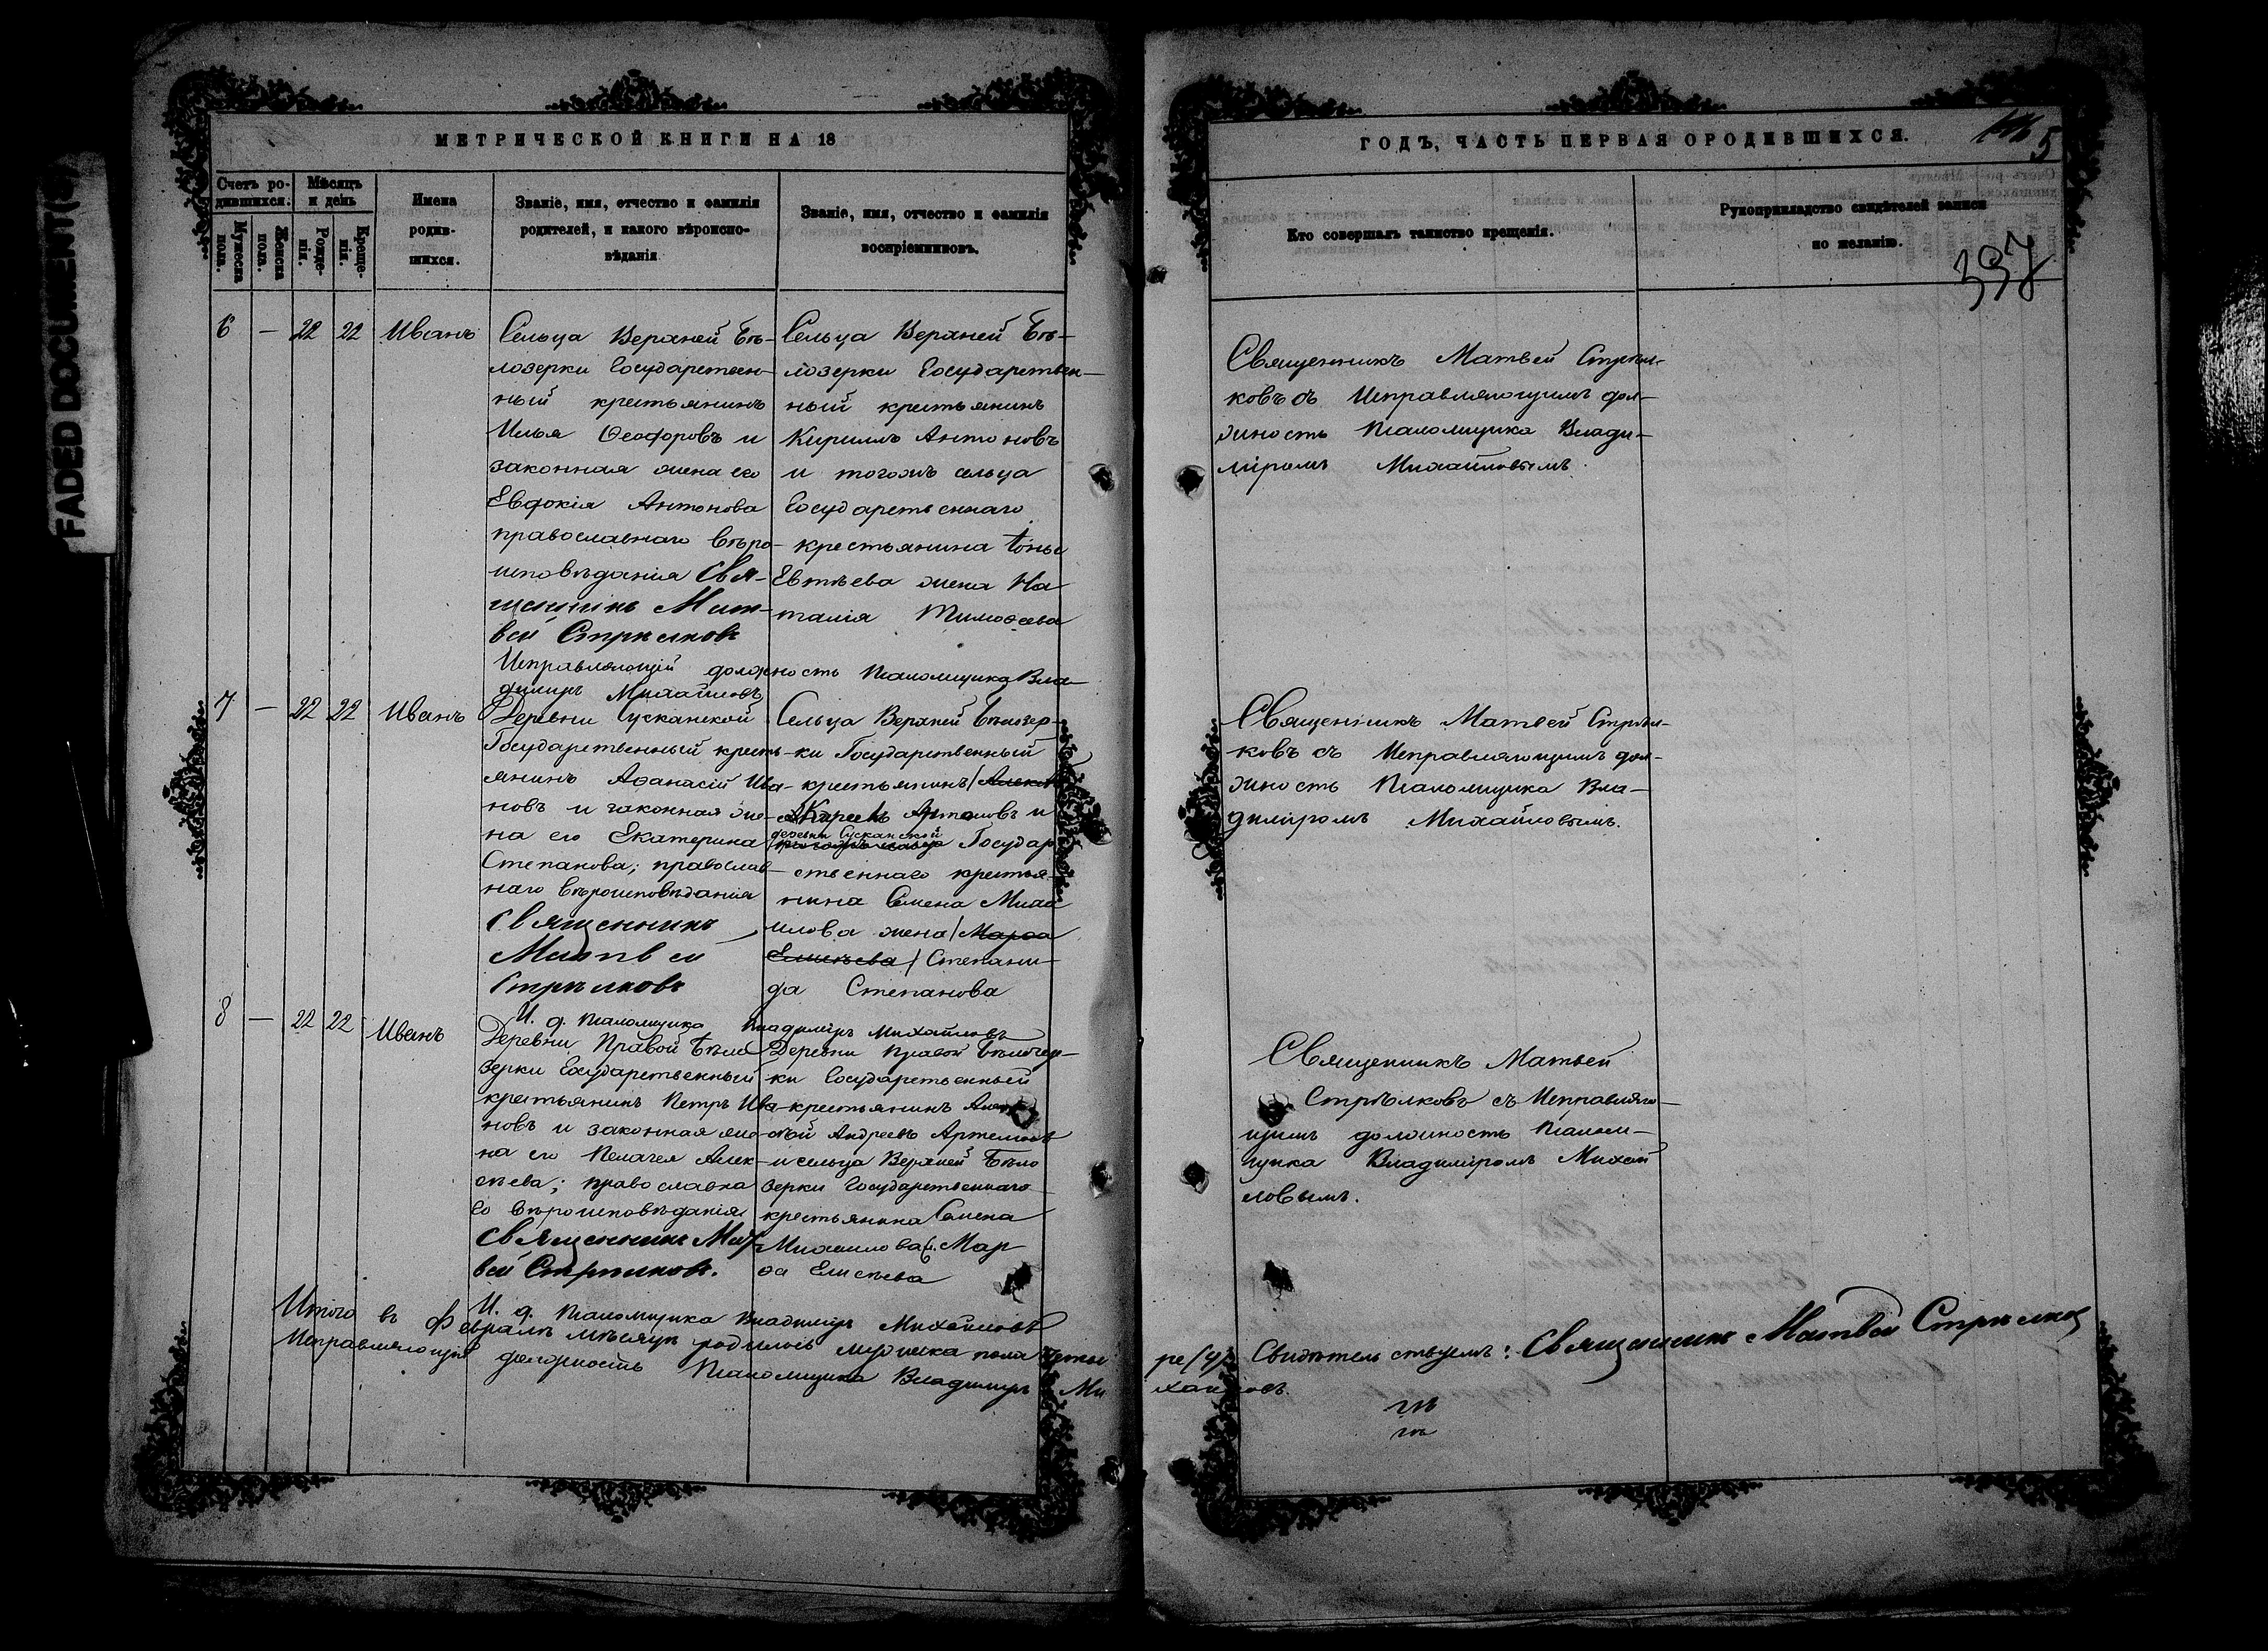 FADED DOCUMENT(S)
МЕТРИЧЕСКОЙ КНИГИ НА 18
Счетъ ро-
дившихся.
Мужеска
пола.
Женска
пола.
Мѣсяцъ
и день
Рожде-
нія.
Креще-
нія.
Имена
родив-
шихся.
Званіе, имя, отчество и фамилія
родителей, и какого вѣроиспо-
вѣданія
Званіе, имя, отчество и фамилія
воспріемниковъ.
6 — 22 22 Иванъ
Сельца Верхней Бѣ-
лозерки Государствен-
ный крестьянинъ
Илья Ѳеодоровъ и
законная жена его
Евдокія Антонова
православнаго вѣро-
исповѣданія Свя-
щенникъ Мат-
вей Стрѣлковъ
Исправляющій должность Псаломщика Вла-
димиръ Михайловъ
Сельца Верхней Бѣ-
лозерки Государствен-
ный крестьянинъ
Кириллъ Антоновъ
и тогожъ сельца
Государственнаго
крестьянина
Евтѣева жена На
талія Тимоѳеева
7 — 22 22 Иванъ
Деревни Сусканской
Государственный кресть-
янинъ Аѳанасій Ива-
новъ и законная же-
на его Екатерина
Степанова; православ-
наго вѣроисповѣданія
Священникъ
Матвей
Стрѣлковъ
И. д. Псаломщика Владиміръ Михайловъ
Сельца Верхней Бѣлозер-
ки Государственный
крестьянинъ
Антоновъ и
деревни Сусканской
Государ
ственнаго крестья-
нина Семена Миха
илова жена / Марѳа
Елисѣева / Степани-
да Степанова
8 — 22 22 Иванъ
Деревни Правой Бѣло
зерки Государственный
крестьянинъ Петръ Ива-
новъ и законная же-
на его Пелагея Алек-
сѣева; православна
го вѣроисповѣданія
Священникъ Мат
вей Стрѣлковъ.
И. д. Псаломщика Владиміръ Михайловъ
Деревни Правой Бѣлозер-
ки Государственный
крестьянинъ Алек
сѣй Андреевъ Артемьевъ
и сельца Верхней Бѣло
зерки Государственнаго
крестьянина Семена
Михаилова ж. Мар
ѳа Елисѣева
Итого въ Февралѣ мѣсяцѣ родилось мужеска пола четы
Исправляющій должность Псаломщика Владимиръ Ми
ГОДЪ, ЧАСТЬ ПЕРВАЯ О РОДИВШИХСЯ.
5
397
Кто совершалъ таинство крещенія.
Рукоприкладство свидѣтелей записи
по желанію.
Священникъ Матвей Стрѣл-
ковъ съ Исправляющимъ дол-
жность Псаломщика Влади-
міромъ Михайловымъ.
Священникъ Матвей Стрѣл-
ковъ съ Исправляющимъ дол-
жность Псаломщика Вла-
диміромъ Михайловымъ.
Священникъ Матвей
Стрѣлковъ съ Исправляю-
щимъ должность Псалом-
щика Владиміромъ Михай
ловымъ.
ре (4) Свидѣтельствуемъ: Священникъ Матвей Стрѣлковъ
хайловъ.